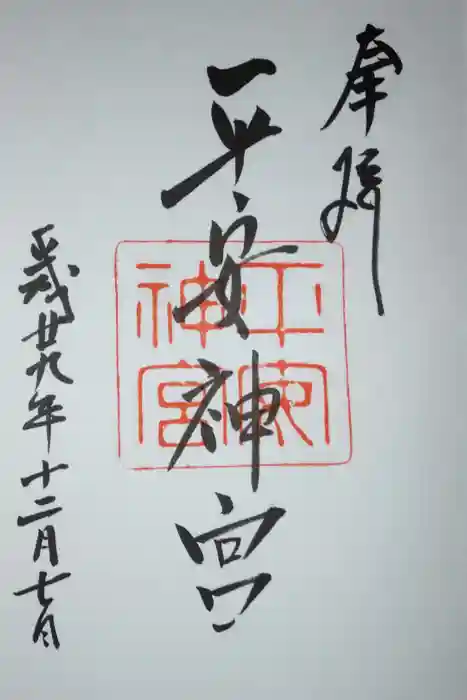 奉拝
平安神宮
平安神宮
平成廿九年十二月七日